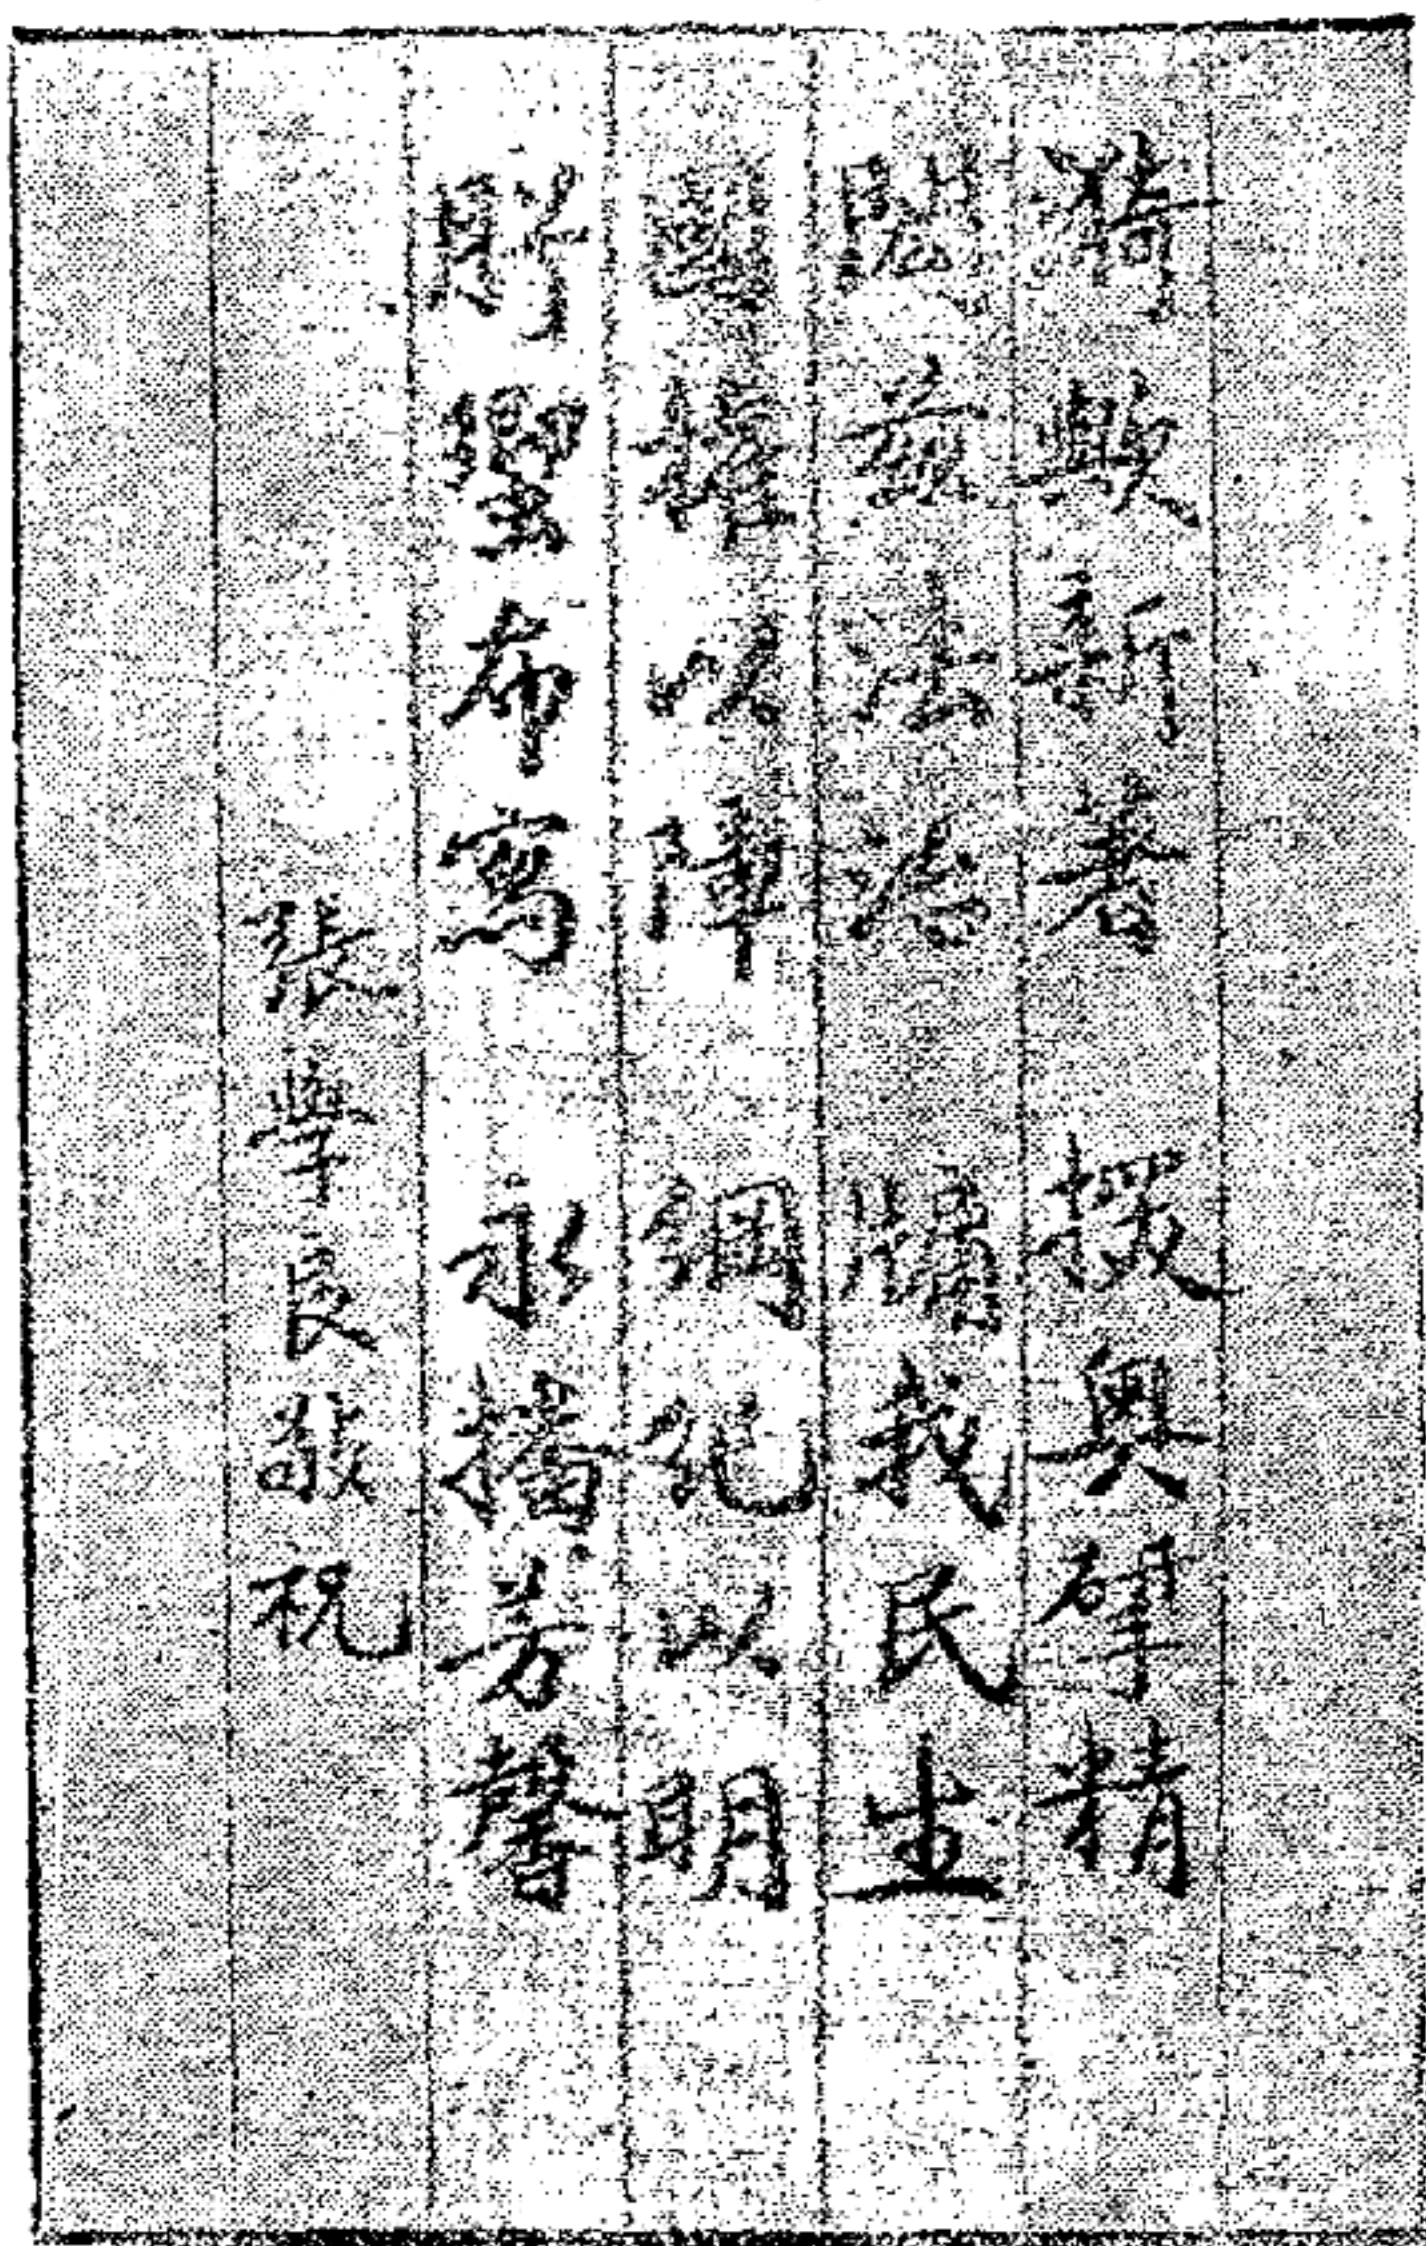 猗歟新著　探奧研精
闡茲法治　牖我民生
權以障　綱紀以明
野堅布寫　永播芳聲
張學良敬祝